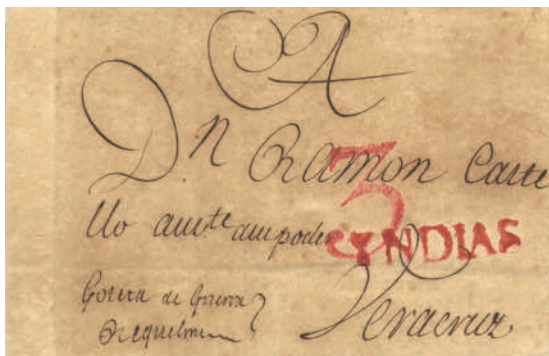 A
Dn Ramon Caste
llo auste asupoder
3
YNDIAS
Goleta de Guerra
Veracruz